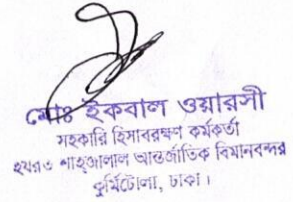 মোঃ ইকবাল ওয়ারসী
সহকারি হিসাবরক্ষণ কর্মকর্তা
হযরত শাহ্জালাল আন্তর্জাতিক বিমানবন্দর
কুর্মিটোলা, ঢাকা।